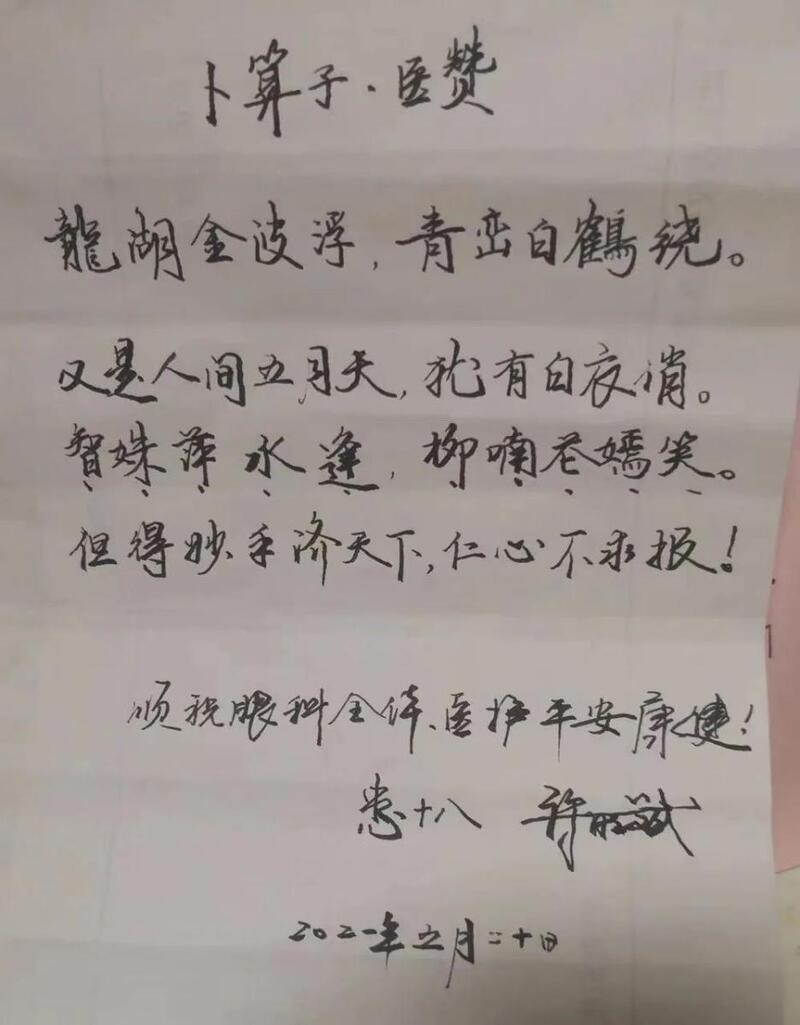 卜算子·医赞
龍湖金波浮,青峦白鹤绕。
又是人间五月天,犹有白衣俏。
智姝萍水逢,柳喃花嫣笑。
但得妙手济天下,仁心不求报!
顺祝眼科全体医护平安康健!
患十八 许
2021年五月二十日